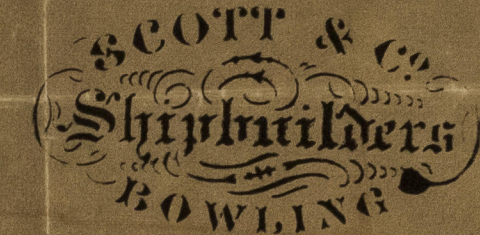 SCOTT & Co.
Shipbuilders
BOWLING